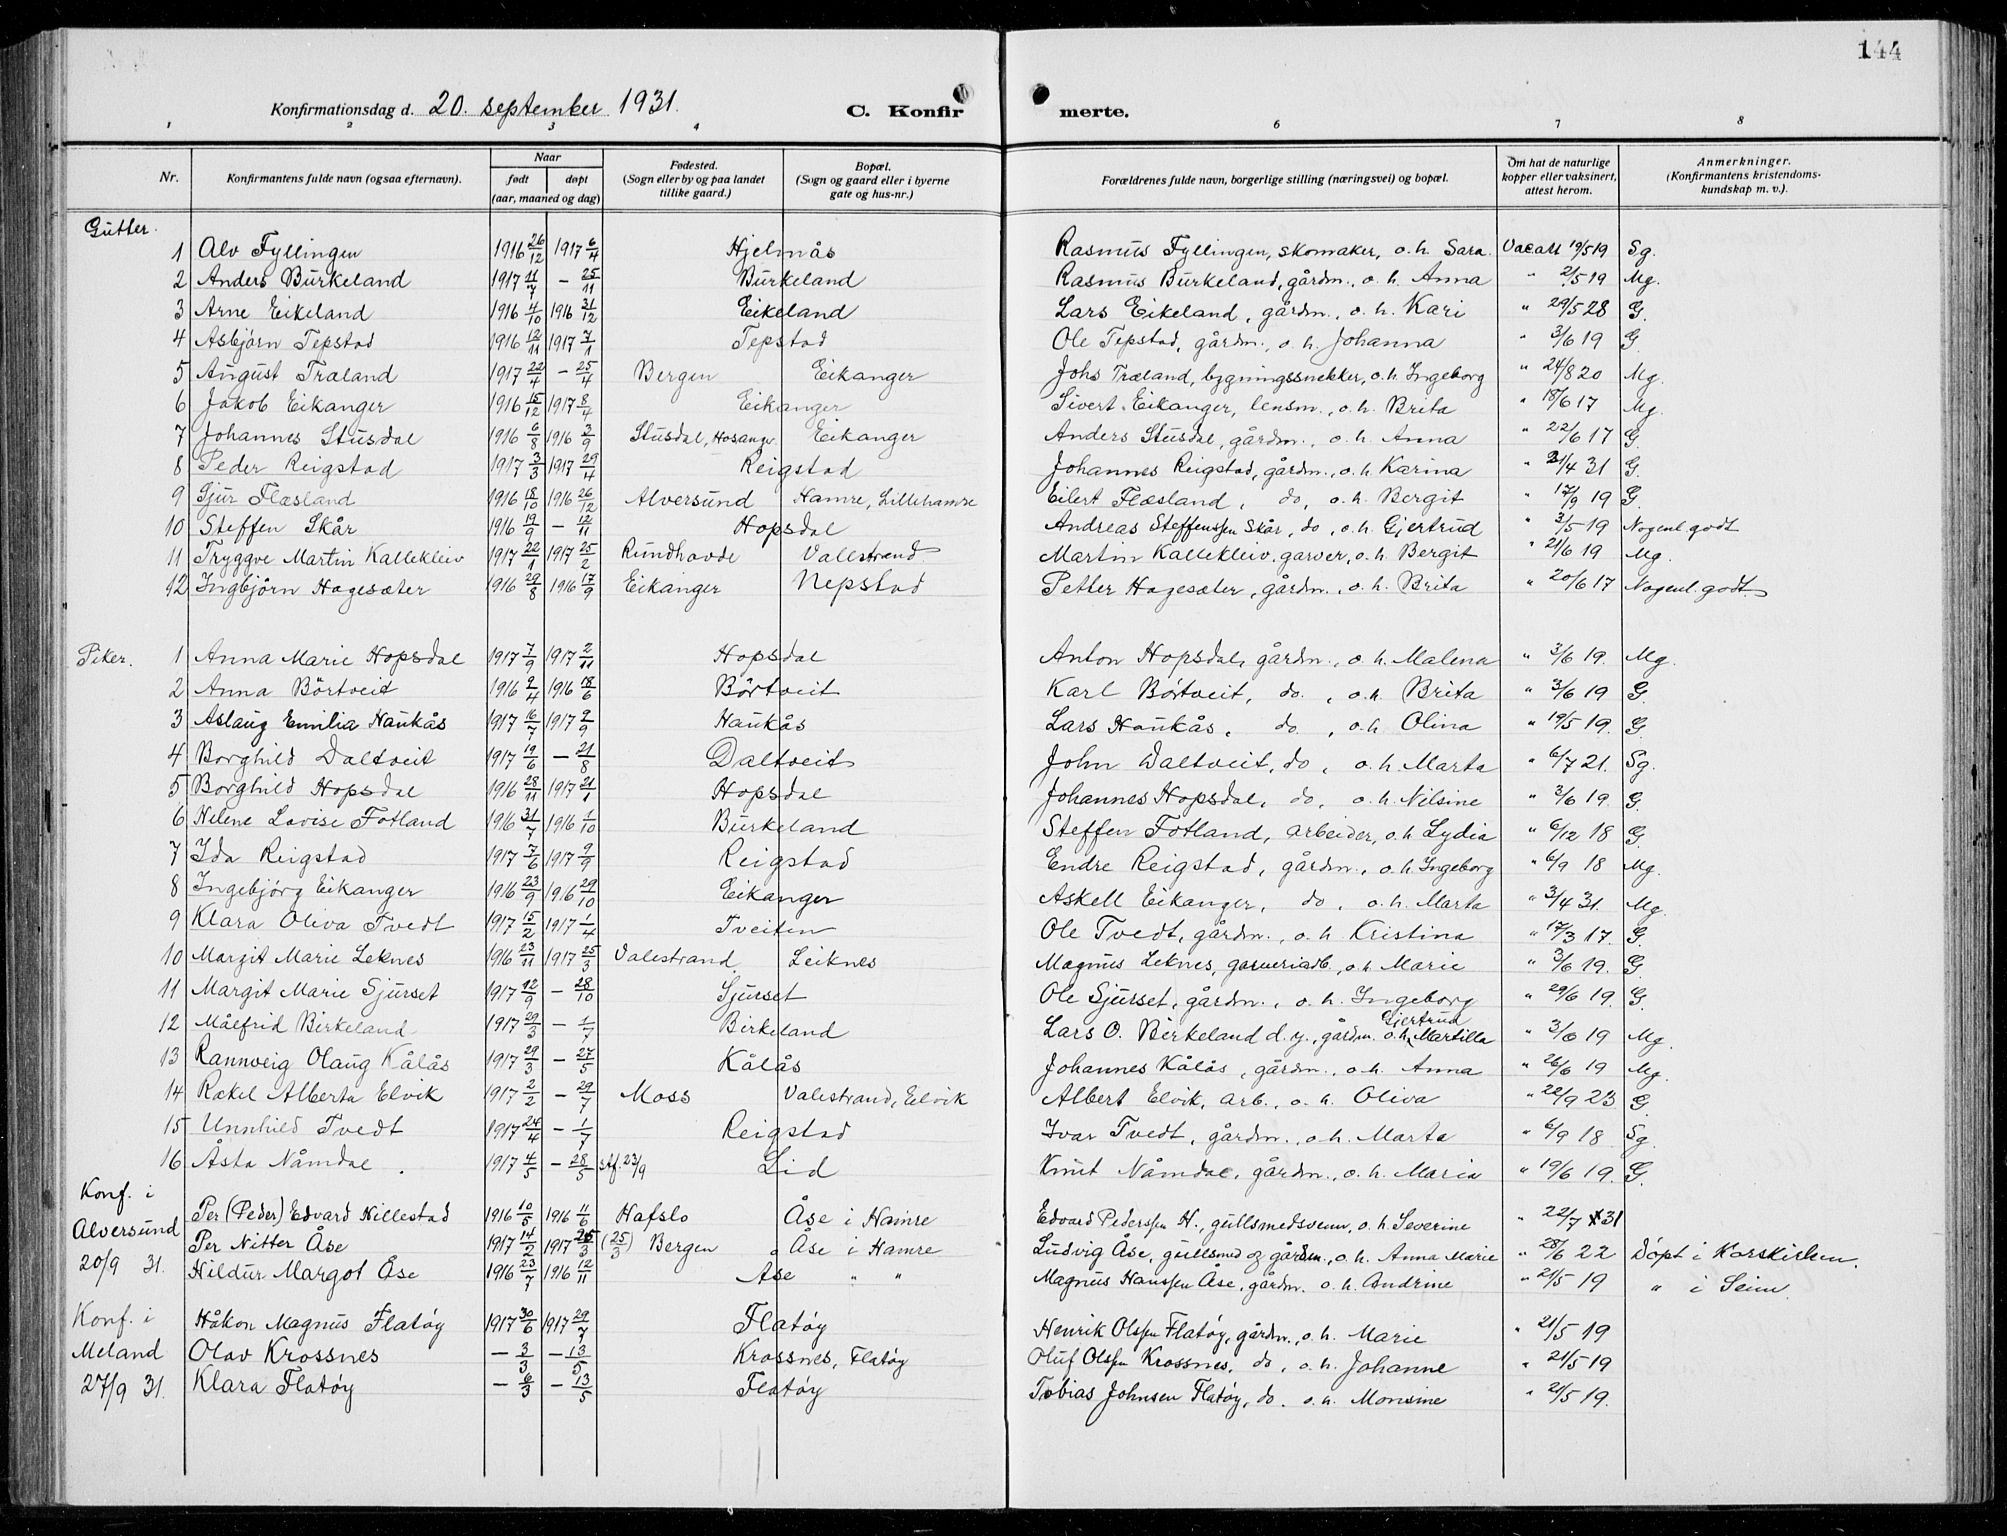 144
Konfirmationsdag d. 20. september 1931. C. Konfirmerte.
1 2 3 4 6 7 8
Nr. | Konfirmantens fulde navn (ogsaa efternavn). | Naar født døpt (aar, maaned og dag) | Fødested. (Sogn eller by og paa landet tillike gaard.) | Bopæl. (Sogn og gaard eller i byerne gate og hus-nr.) | Forældrenes fulde navn, borgerlige stilling (næringsvei) og bopæl. | Om hat de naturlige kopper eller vaksinert, attest herom. | Anmerkninger. (Konfirmantens kristendomskundskap m. v.).
Gutter.
1 Alv Fyllingen 1916 26/12 1917 6/4 Hjelmås Rasmus Fyllingen, skomaker, o. h. Sara. Vac. att 19/5 19 Sg.
2 Anders Burkeland 1917 11/7 – 25/11 Burkeland Rasmus Burkeland, gårdm., o. h. Anna " 2/5 19 Mg.
3 Arne Eikeland 1916 4/10 1916 31/12 Eikeland Lars Eikeland, gårdm., o. h. Kari " 29/5 28 G.
4 Asbjörn Tepstad 1916 12/11 1917 7/1 Tepstad Ole Tepstad, gårdm., o. h. Johanna " 3/6 19 G.
5 August Træland 1917 22/4 – 25/4 Bergen Eikanger Johs Træland, bygningssnekker, o. h. Ingeborg " 24/8 20 Mg.
6 Jakob Eikanger 1916 15/12 1917 8/4 Eikanger Sivert Eikanger, lensm., o. h. Brita " 18/6 17 Mg.
7 Johannes Stusdal 1916 6/8 1916 3/9 Stusdal, Hosanger. Eikanger Anders Stusdal, gårdm., o. h. Anna " 22/6 17 G.
8 Peder Reigstad 1917 3/3 1917 29/4 Reigstad Johannes Reigstad, gårdm., o. h. Karina " 21/4 31 G.
9 Gjur Flæsland 1916 18/10 1916 26/12 Alversund Hamre, Lillehamre Eilert Flæsland, do, o. h. Bergit " 17/9 19 G.
10 Steffen Skår 1916 19/9 – 12/11 Hopsdal Andreas Steffenssen Skår, do, o. h. Gjertrud " 3/5 19 Nogenl. godt
11 Tryggve Martin Kallekleiv 1917 22/1 1917 25/2 Rundhovde Vallestrand. Martin Kallekleiv, garver, o. h. Bergit " 21/6 19 Mg.
12 Ingbjörn Hagesæter 1916 29/8 1916 17/9 Eikanger Nepstad Petter Hagesæter, gårdm., o. h. Brita " 20/6 17 Nogenl. godt.
Piker. 1 Anna Marie Hopsdal 1917 7/9 1917 2/11 Hopsdal Anton Hopsdal, gårdm., o. h. Malena " 3/6 19. Mg.
2 Anna Börtveit 1916 9/4 1916 18/6 Börtveit Karl Börtveit, do, o. h. Brita " 3/6 19 G.
3 Aslaug Emilia Haukås 1917 16/7 1917 9/9 Haukås Lars Haukås, do, o. h. Olina " 19/5 19. G.
4 Borghild Daltveit 1917 19/6 – 21/8 Daltveit John Daltveit, do, o. h. Marta " 6/7 21. Sg.
5 Borghild Hopsdal 1916 28/11 1917 21/1 Hopsdal Johannes Hopsdal, do, o. h. Nilsine " 3/6 19. G.
6 Helene Lovise Fotland 1916 31/7 1916 1/10 Burkeland Steffen Fotland, arbeider, o. h. Lydia " 6/12 18 G.
7 Ida Reigstad 1917 7/6 1917 9/9 Reigstad Endre Reigstad, gårdm., o. h. Ingeborg " 6/9 18 Mg.
8 Ingebjörg Eikanger 1916 23/9 1916 29/10 Eikanger Askell Eikanger, do, o. h. Marta " 3/4 31. Mg.
9 Klara Oliva Tvedt 1917 15/2 1917 1/4 Tveiten Ole Tvedt, gårdm., o. h. Kristina " 17/3 17. G.
10 Margit Marie Leknes 1916 23/11 1917 25/3 Valestrand. Leiknes Magnus Leknes, garveriarb., o. h. Marie " 3/6 19. G.
11 Margit Marie Sjurset 1917 12/9 – 28/10 Sjurset Ole Sjurset, gårdm., o. h. Ingeborg " 29/6 19. G.
12 Målfrid Birkeland 1917 29/3 – 1/7 Birkeland Lars O. Birkeland d. y., gårdm. o. h. Gjertrud Martilla " 3/6 19 Mg.
13 Rannveig Olaug Kålås 1917 29/3 – 27/5 Kålås Johannes Kålås, gårdm., o. h. Anna " 26/6 19 Mg.
14 Rakel Alberta Elvik 1917 2/2 – 29/7 Moss Valestrand, Eelvik Albert Elvik, arb., o. h. Oliva " 22/9 23 G.
15 Unnhild Tvedt 1917 24/4 – 1/7 Reigstad Ivar Tvedt, gårdm., o. h. Marta " 6/9 18 Sg.
16 Åsta Nåmdal. 1917 4/5 – 28/5 stf. 23/9 Lid Knut Nåmdal, gårdm., o. h. Maria " 19/6 19. G.
Konf. i Alversund 20/9 31.
Per (Peder) Edvard Hillestad 1916 10/5 1916 11/6 Hafslo Åse i Hamre Edvard Pederssen H., gullsmedsvenn, o. h. Severine " 22/7 31
Per Nitter Åse 1917 14/2 1917 25/3 (25/3) Bergen Åse i Hamre Ludvig Åse, gullsmed og gårdm., o. h. Anna Marie " 28/6 22 Döpt i Korskirken.
Hildur Margot Åse 1916 23/7 1916 12/11 Åse " " Magnus Hanssen Åse, gårdm. o. h. Andrine " 21/5 19 " i Seim.
Konf. i Meland 27/9 31.
Håkon Magnus Flatöy 1917 30/6 1917 29/7 Flatöy Henrik Olssen Flatöy, gårdm., o. h. Marie " 21/5 19
Olav Krossnes – 3/3 – 13/5 Krossnes, Flatöy Oluf Olssen Krossnes, do, o. h. Johanne " 21/5 19
Klara Flatöy – 6/3 – 13/5 Flatöy Tobias Johnsen Flatöy, do. o. h. Monsine " 21/5 19.